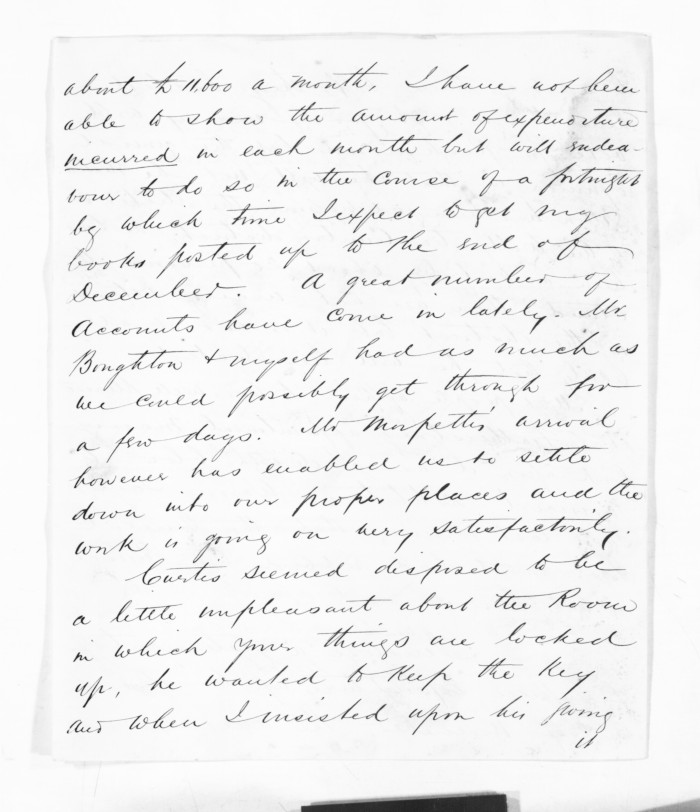 about £11,600 a month, I have not been
able to show the amount of expenditure
incurred in each month but will endea-
vour to do so in the course of a fortnight
by which time I expect to get my
books posted up to the end of
December. A great number of
Accounts have come in lately. Mr
Boughton & myself had as much as
we could possibly get through for
a few days. Mr Morpeth's arrival
however has enabled us to settle
down into our proper places and the
work is going on very satisfactorily.
Curtis seemed disposed to be
a little unpleasant about the Room
in which your things are locked
up, he wanted to keep the key
and when I insisted upon his giving
it